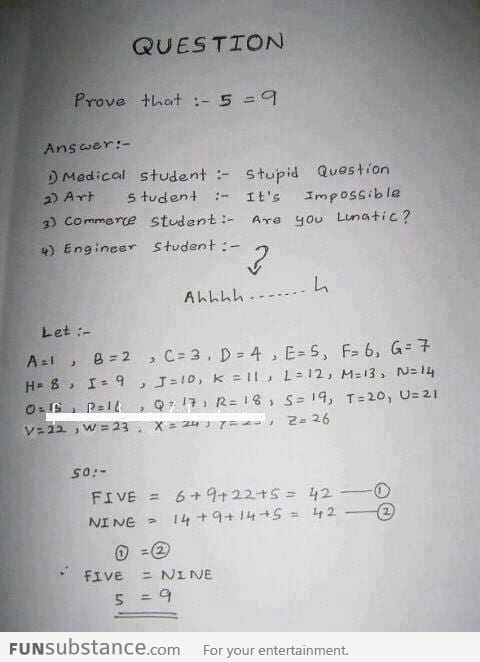 QUESTION
Prove that :- 5 = 9
Answer:-
1) Medical student :- Stupid Question
2) Art student :- It's Impossible
3) Commerce student:- Are you Lunatic?
4) Engineer Student :- ?
Ahhhh.......h
Let :-
A=1 , B=2 , C=3 , D=4 , E=5, F=6, G=7
H=8 , I=9 , J=10, K=11 , L=12, M=13, N=14
O=15 , P=16 , Q=17 , R=18 , S=19, T=20, U=21
V=22 , W=23 , X=24 , Y=25 , Z=26
SO:-
FIVE = 6+9+22+5 = 42 — ①
NINE = 14+9+14+5 = 42 — ②
① = ②
∴ FIVE = NINE
5 = 9
FUNsubstance.com For your entertainment.